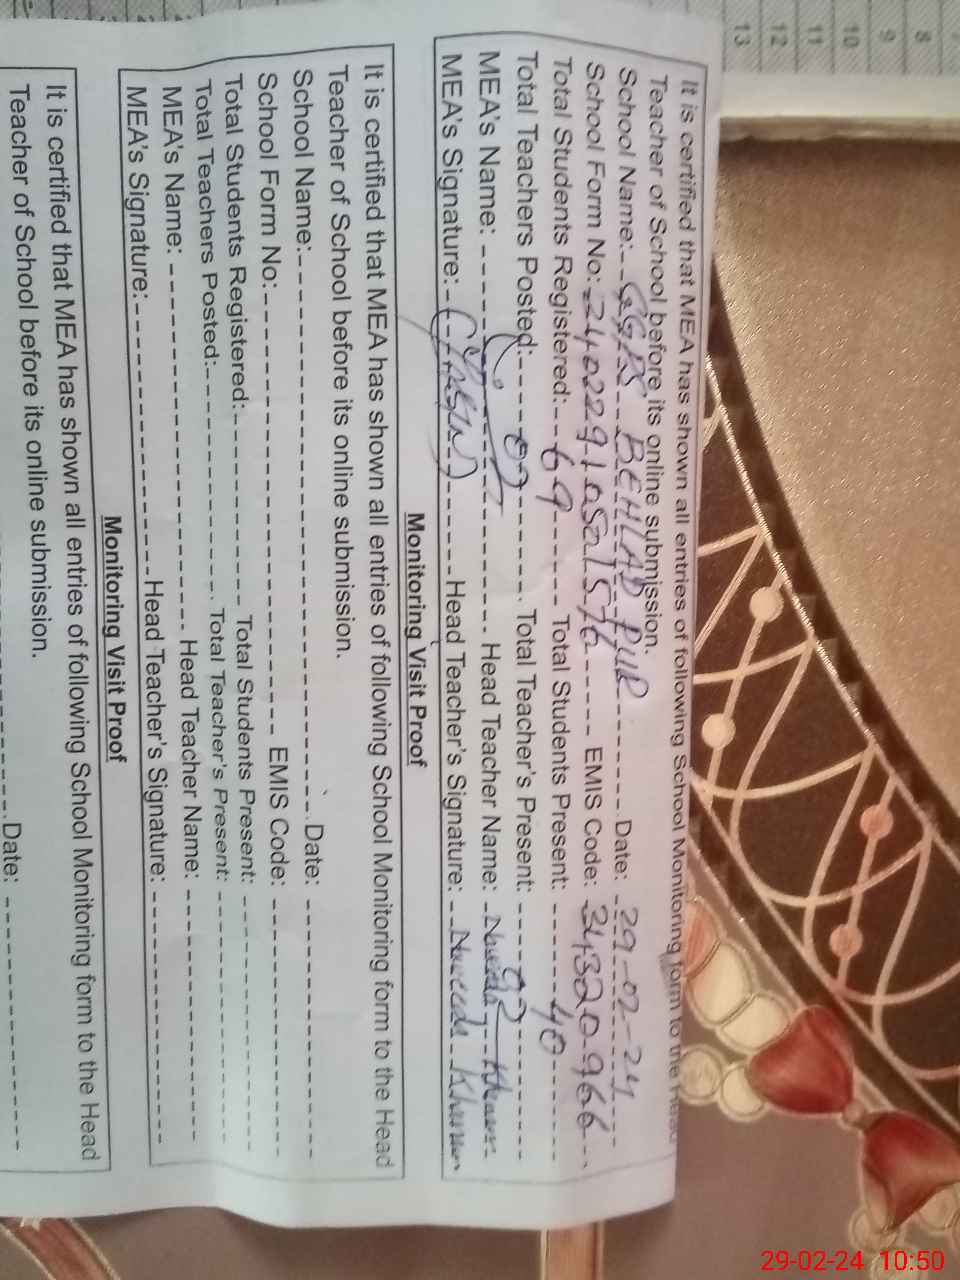 It is certified that MEA has shown all entries of following School Monitoring form to the Head
Teacher of School before its online submission.
School Name: GGPS BEHLAD PUR Date: 29-02-24
School Form No: EMIS Code: 34320966
Total Students Registered: 69 Total Students Present: 40
Total Teachers Posted: 02 Total Teacher's Present: 02
MEA's Name: Head Teacher Name: Naveeda Khanum
MEA's Signature: Head Teacher's Signature: Naveeda Khanum
Monitoring Visit Proof
It is certified that MEA has shown all entries of following School Monitoring form to the Head
Teacher of School before its online submission.
School Name: Date:
School Form No: EMIS Code:
Total Students Registered: Total Students Present:
Total Teachers Posted: Total Teacher's Present:
MEA's Name: Head Teacher Name:
MEA's Signature: Head Teacher's Signature:
Monitoring Visit Proof
It is certified that MEA has shown all entries of following School Monitoring form to the Head
Teacher of School before its online submission.
Date:
8
9
10
11
12
13
29-02-24 10:50